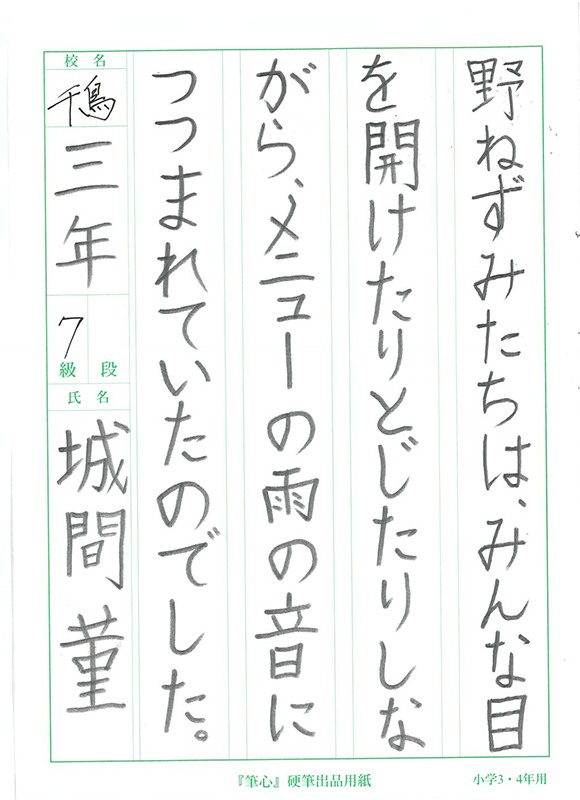 野ねずみたちは、みんな目
を開けたりとじたりしな
がら、メニューの雨の音に
つつまれていたのでした。
校名
千鳥
三年
7
級 段
氏名
城間 菫
『筆心』硬筆出品用紙
小学3・4年用